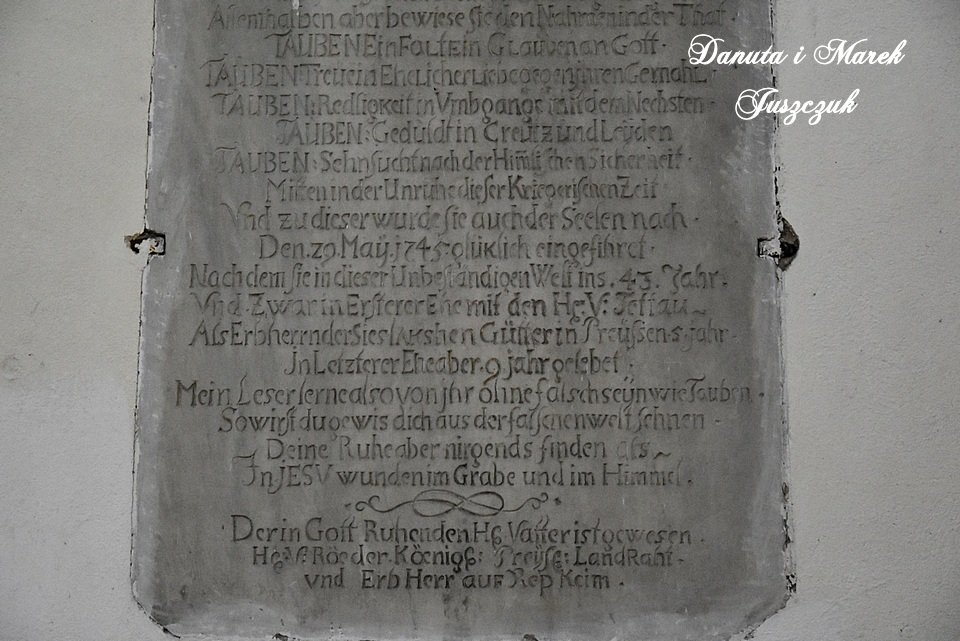 Allenthalben aber bewiese sie den Nahmen in der That.
TAUBEN Einfalt ein Glauven an Gott.
TAUBEN Treue in Ehelicher Liebe gegen jhren Gemahl.
TAUBEN: Redligkeit in Vmbgange mit dem Nechsten.
TAUBEN: Geduldt in Creutz und Leyden
TAUBEN: Sehnsucht nach der Him̃lischen Sicherheit.
Mitten in der Unruhe dieser Kriegerischen Zeit
Vnd zu dieser wurde sie auch der Seelen nach.
Den. 29. Maÿ. 1745. glüklich eingeführet.
Nach dem sie in dieser Unbeständigen Welt ins. 43. Jahr.
Vnd. Zwar in Ersterer Ehe mit den Hg: V: Tettau
Als Erbherrn der Sieslakshen Gütter in Preüssen. 5. jahr.
Jn Letzterer Ehe aber. 9. jahr gelebet.
Mein Leser lerne also von jhr ohne falsch seÿn wie Tauben.
So wirst du gewis dich aus der falschen welt sehnen.
Deine Ruhe aber nirgends finden als
Jn JESV wunden im Grabe und im Himmel.
Der in Gott Ruhenden Hg Vatter ist gewesen.
Hg: V: Röeder. Köenigß: Preüß: Land Raht.
vnd Erb Herr auf Rep Keim.
Danuta i Marek
Juszczuk